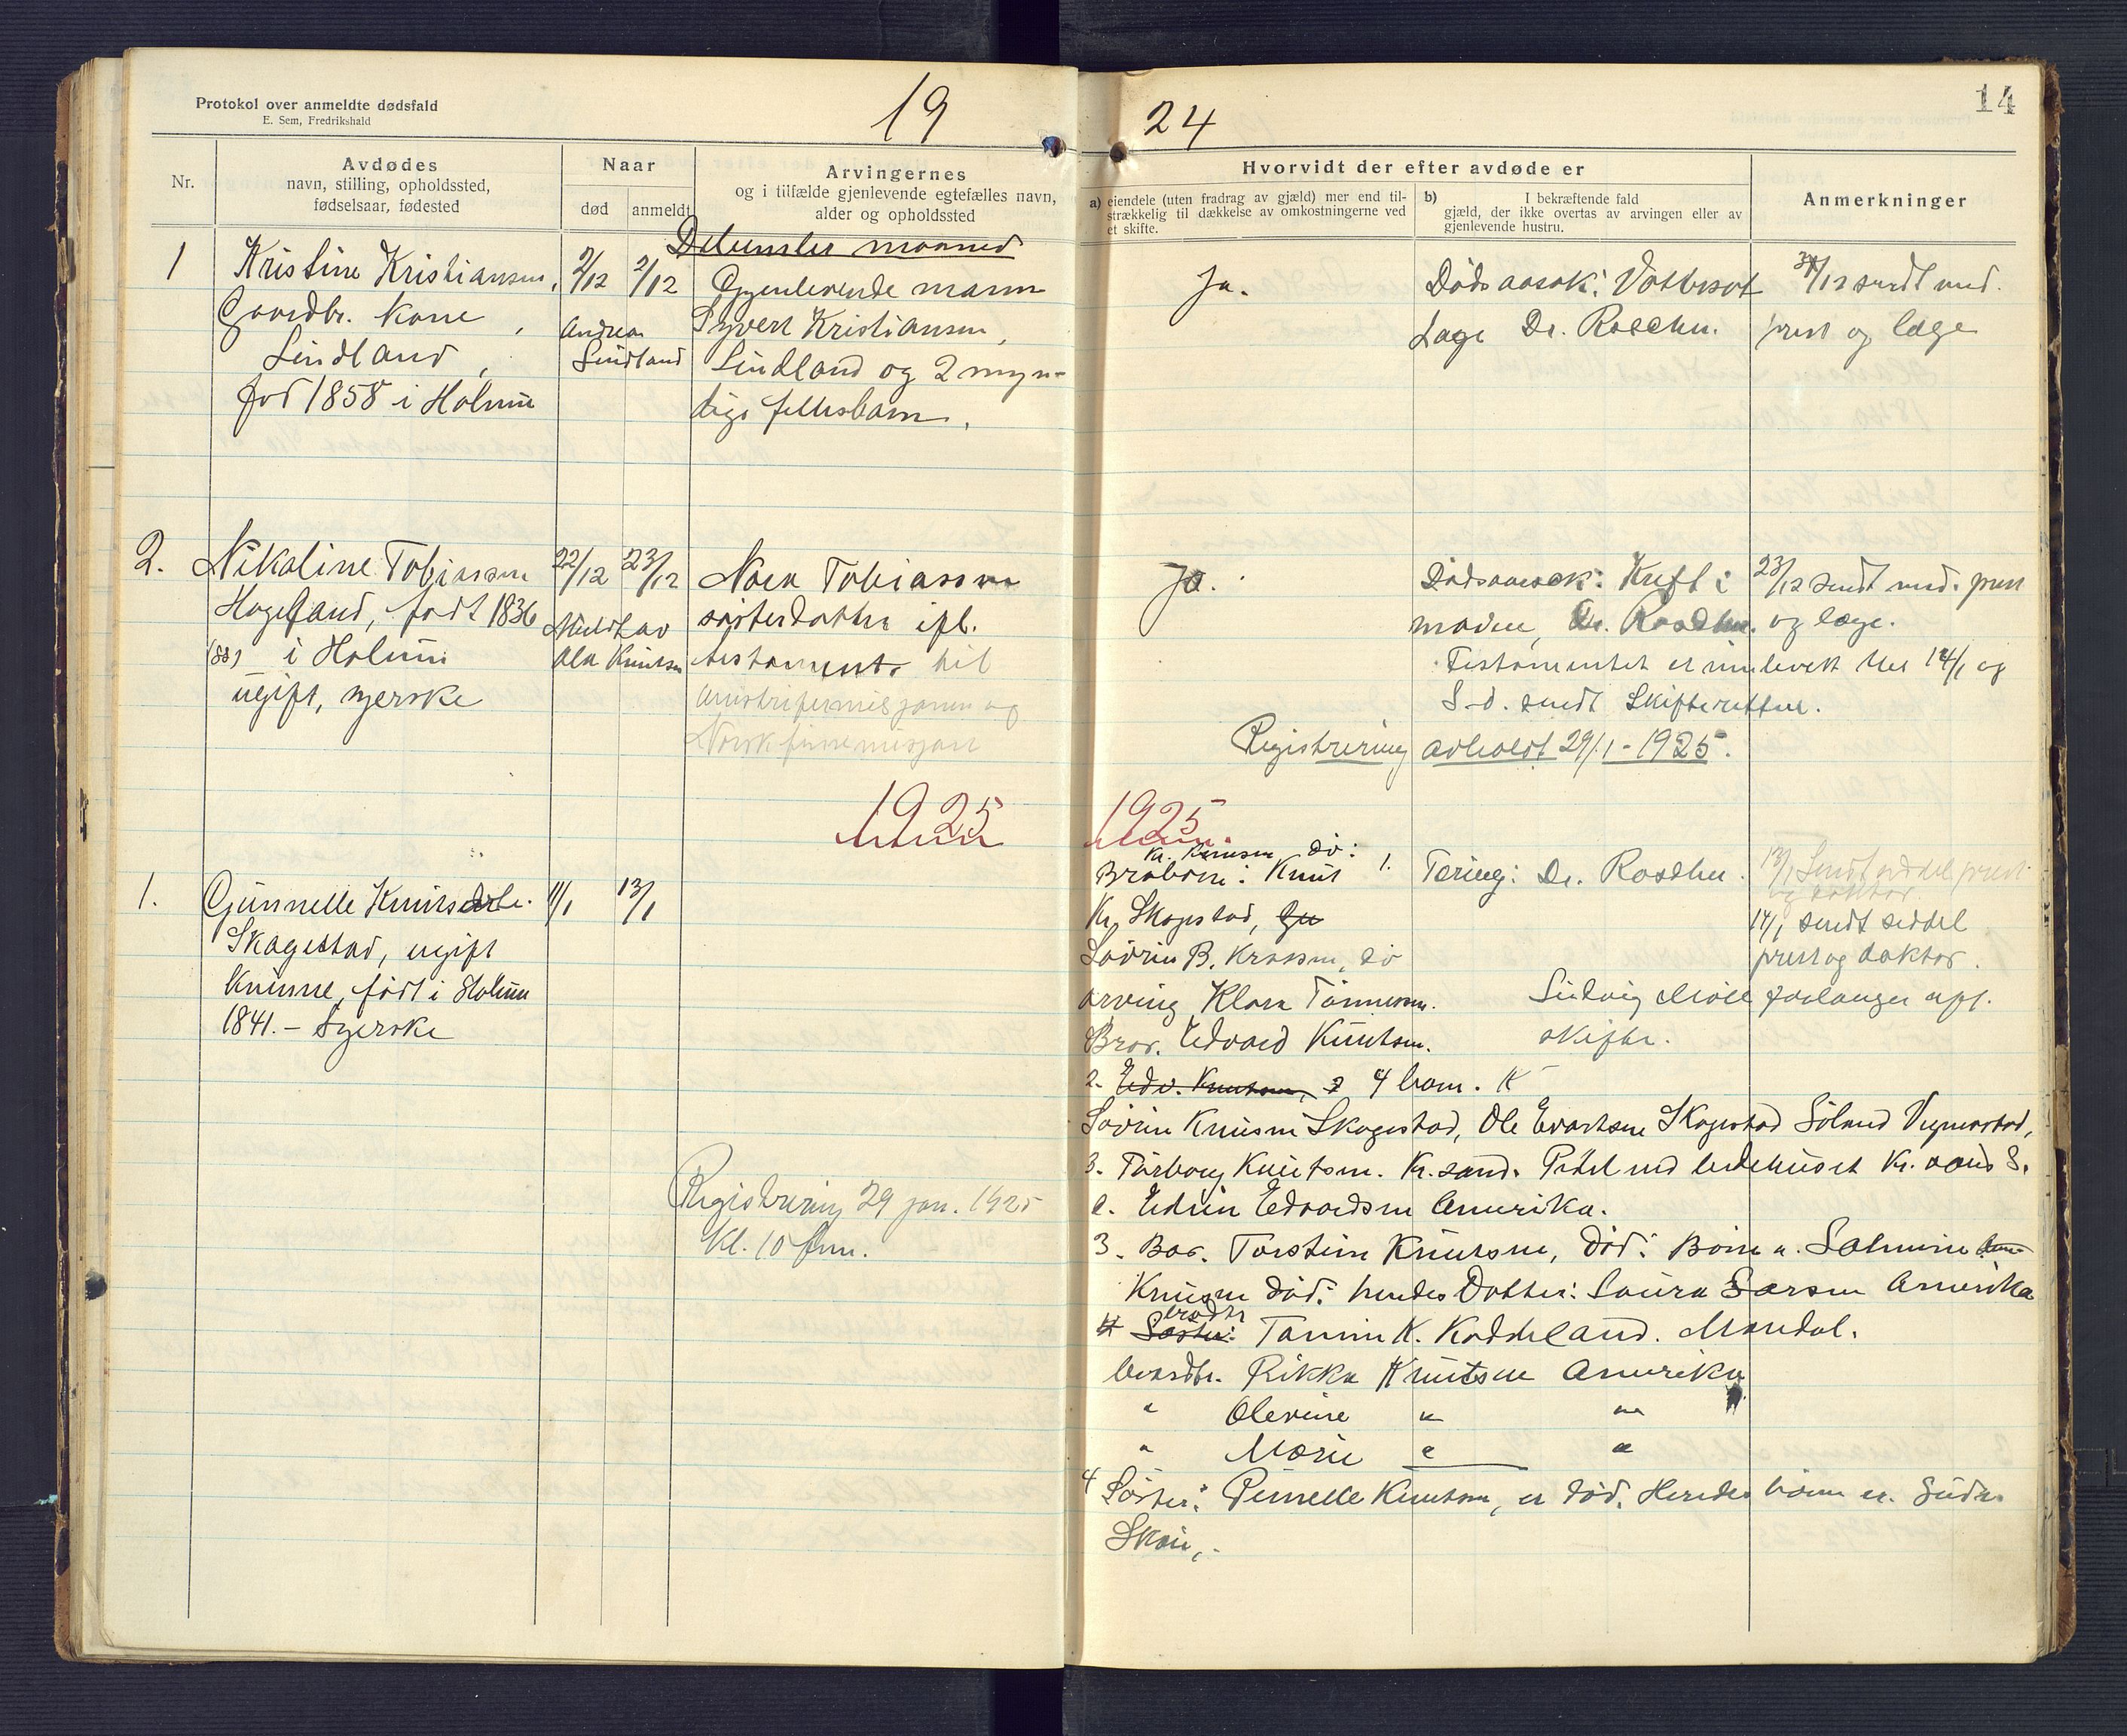 Protokol over anmeldte dødsfald
E. Sem, Fredrikshald
19
24
14
Nr.
Avdødes
navn, stilling, opholdssted,
fødselsaar, fødested
Naar
død
anmeldt
Arvingernes
og i tilfælde gjenlevende egtefælles navn,
alder og opholdssted
Hvorvidt der efter avdøde er
a) eiendele (uten fradrag av gjæld) mer end til-
strækkelig til dækkelse av omkostningerne ved
et skifte.
b) I bekræftende fald
gjæld, der ikke overtas av arvingen eller av
gjenlevende hustru.
Anmerkninger
Desember maaned
1
Kristine Kristiansen,
Gaardbr. Kone,
Lindland,
fød 1858 i Holum
2/12
2/12
Andreas
Lindland
Gjenlevende mann
Syvert Kristiansen,
Lindland og 2 myn-
dige fellesbarn.
Ja.
Dødsaarsak: Vattersot
Læge Dr. Rosdhn.
/12 sendt med.
prest og læge
2.
Nikoline Tobiassen
Hageland, født 1836
(88) i Holum
ugift, syerske
22/12
23/12
Meldt av
Ola Knutsen
Nora Tobiassen
søsterdatter ifl.
testament til
og
Norsk finnemisjon
Ja.
Dødsaarsak: Kreft i
maven, Dr. Rosdhn.
23/12 sendt med. prest
og læge.
Testamentet er innlevert her 14/1 og
S.d. sendt Skifteretten.
Registrering avholdt 29/1-1925.
1925
1925
1.
Gunnelle Knutsdtr.
Skagestad, ugift
kvinne, født i Holum
1841. - Syerske
11/1
13/1
Registrering 29 jan. 1925
Kl. 10 fm.
Kr. Knutsen dø:
Brobørn: Knut 1.
Kr. Skagestad,
Sørine B. død
arving Klara Tønnessen.
Bror. Edvard Knutsen.
2. Edv. Knutsen, 4 barn. K
Tæring: Dr. Rosdhn.
13/1 Sendt seddel prest
og doktor
14/1 sendt seddel
prest og doktor.
Ludvig Møll forlanger off.
skifte.
Sørine Knutsen Skagestad, Ole Evertsen Skagestad
3. Torborg Knutsen. Kr.sand. bedehuset Kr.sand S.
e. Edvin Edvardsen Amerika.
3. Bror. Torstein Knutsen, død: Børn. Salmine
Knutsen død: hendes Datter: Laura Larsen Amerika
brodtr
Søster: Tomine K. Kaddeland. Mandal.
brordtr. Rikka Knutsen Amerika
" Olevine " "
" Marie " "
4 Søster: Pernelle Knutsen, er død. Hendes børn er.